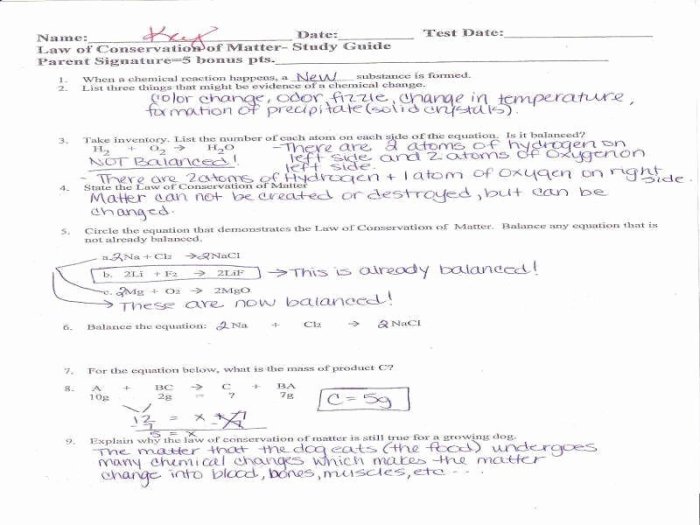 Name: Key Date: Test Date:
Law of Conservation of Matter- Study Guide
Parent Signature=5 bonus pts.
1. When a chemical reaction happens, a New substance is formed.
2. List three things that might be evidence of a chemical change.
Color change, odor, fizzle, change in temperature,
formation of precipitate (solid crystals).
3. Take inventory. List the number of each atom on each side of the equation. Is it balanced?
H2 + O2 → H2O - There are 2 atoms of hydrogen on
NOT Balanced! left side and 2 atoms of oxygen on
left side.
- There are 2 atoms of Hydrogen + 1 atom of oxygen on right side.
4. State the Law of Conservation of Matter
Matter can not be created or destroyed, but can be
changed.
5. Circle the equation that demonstrates the Law of Conservation of Matter. Balance any equation that is
not already balanced.
a. 2Na + Cl2 → 2NaCl
b. 2Li + F2 → 2LiF → This is already balanced!
c. 2Mg + O2 → 2MgO
→ These are now balanced!
6. Balance the equation: 2 Na + Cl2 → 2 NaCl
7. For the equation below, what is the mass of product C?
8. A + BC → C + BA
10g 2g = ? 7g C = 5g
12 = x + 7
-7 -7
5 = x
9. Explain why the law of conservation of matter is still true for a growing dog.
The matter that the dog eats (the food) undergoes
many chemical changes which makes the matter
change into blood, bones, muscles, etc....